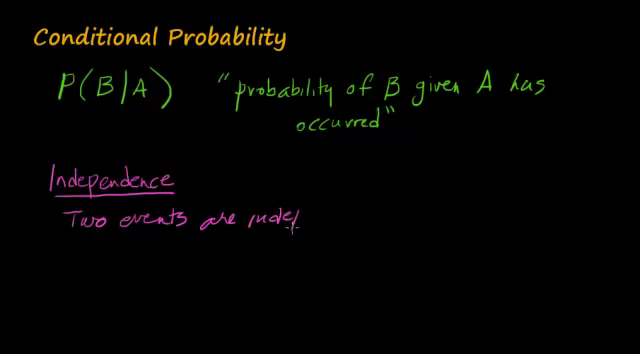 Conditional Probability
P(B/A) "probability of B given A has
occurred"
Independence
Two events are inde